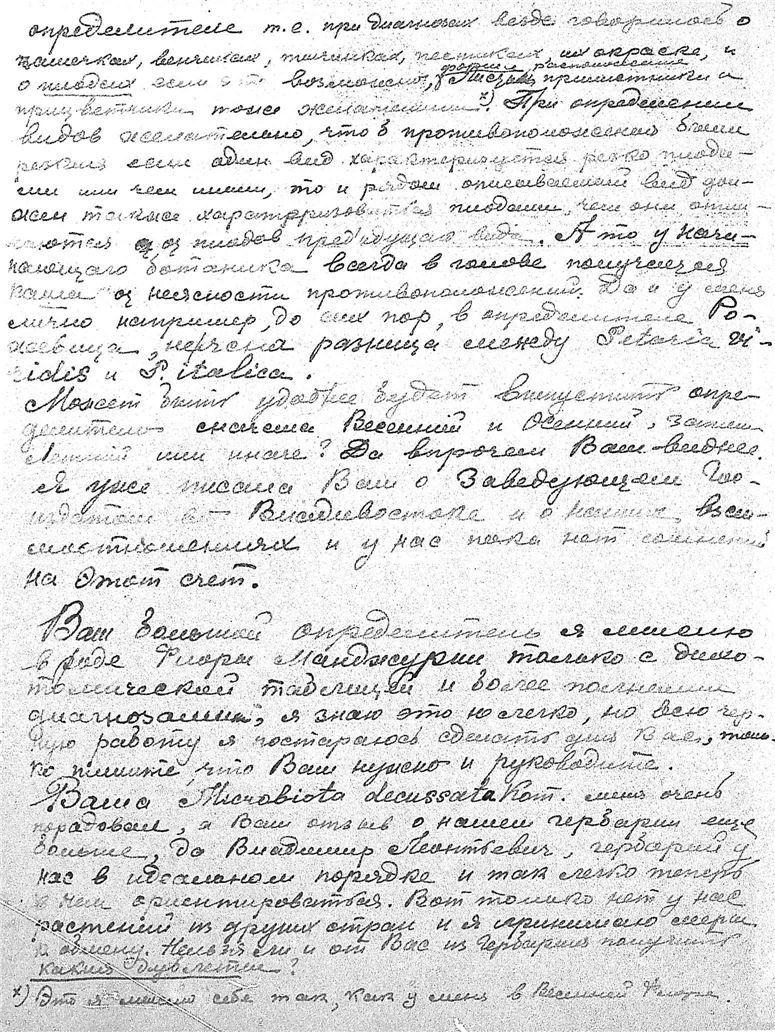 определителе т.е. при диагнозах везде говорилось о
чашечках, венчиках, тычинках, пестиках их окраске, и
о плодах если это возможно, форма расположение листьев прилистники и
прицветники тоже желательны х). При определении
видов желательно, чтоб противоположения были
резкие если один вид характеризуется резко плода-
ми или чем иным, то и рядом описываемый вид дол-
жен также характеризоваться плодами, чем они отли-
чаются от плодов предыдущаго вида. А то у начи-
нающаго ботаника всегда в голове получается
каша от неясности противоположений. Да и у меня
лично например, до сих пор, в определителе Ро-
жевица, неясна разница между Setaria vi-
ridis и S. italica.
Может быть удобнее будет выпустить опре-
делитель сначала Весенний и Осенний, затем
Летний или иначе? Да впрочем Вам виднее.
Я уже писала Вам о Заведующем Гос-
издатом во Владивостоке и о наших взаи-
моотношениях и у нас пока нет сомнений
на этот счет.
Ваш большой определитель я мыслю
в роде Флоры Манджурии только с дихо-
томической таблицей и более полными
диагнозами, я знаю это не легко, но всю чер-
ную работу я постараюсь сделать для Вас, толь-
ко пишите, что Вам нужно и руководите.
Ваша Microbiota decussata Kom. меня очень
порадовал, а Ваш отзыв о нашем гербарии еще
больше, да Владимир Леонтьевич, гербарий у
нас в идеальном порядке и так легко теперь
в нем ориентироваться. Вот только нет у нас
растений из других стран и я принимаю меры
к обмену. Нельзя ли и от Вас из Гербария получить
какия дублеты?
х) Это я мыслю себе так, как у меня в Весенней Флоре.